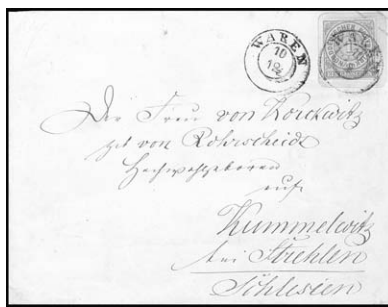 WAREN
10
WAREN
Der Frau von Korckwitz
geb von Rohrscheidt
Hochwohlgeboren
auf
Kummelwitz
bei Strehlen
Schlesien